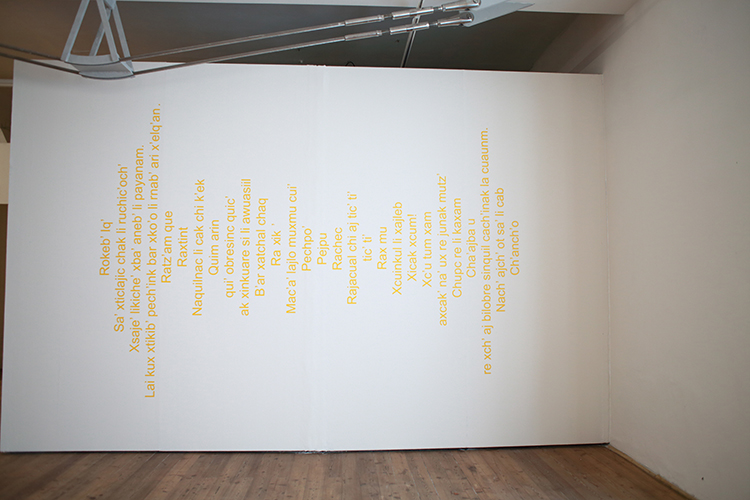 Rokeb' Iq'
Sa' xticlajic chak li ruchic'och'
Xsaje' likiche' xba' aneb' li payanam.
Lai kux xtikib' pech'ink bar xko'o li mab' ari x'elq'an.
Ratz'am que
Raxtint
Naquilnac li cak chi k'ek
Quim arin
qui' obresinc quic'
ak xinkuare si li awuasiil
B'ar xatchal chaq
Ra xik '
Mac'a' lajlo muxmu cui'
Pechpo'
Pejpu
Rachec
Rajacual chi aj tic' ti'
tic' ti'
Rax mu
Xcuinkul li xajleb
Xicak xcum!
Xo'u tum xam
axcak' na' ux re junak mutz'
Chupc re li kaxam
Cha'ajba u
re xch' aj bilobre sinquil cach'inak la cuaunm.
Nach' ajch' ot sa' li cab
Ch'anch'o